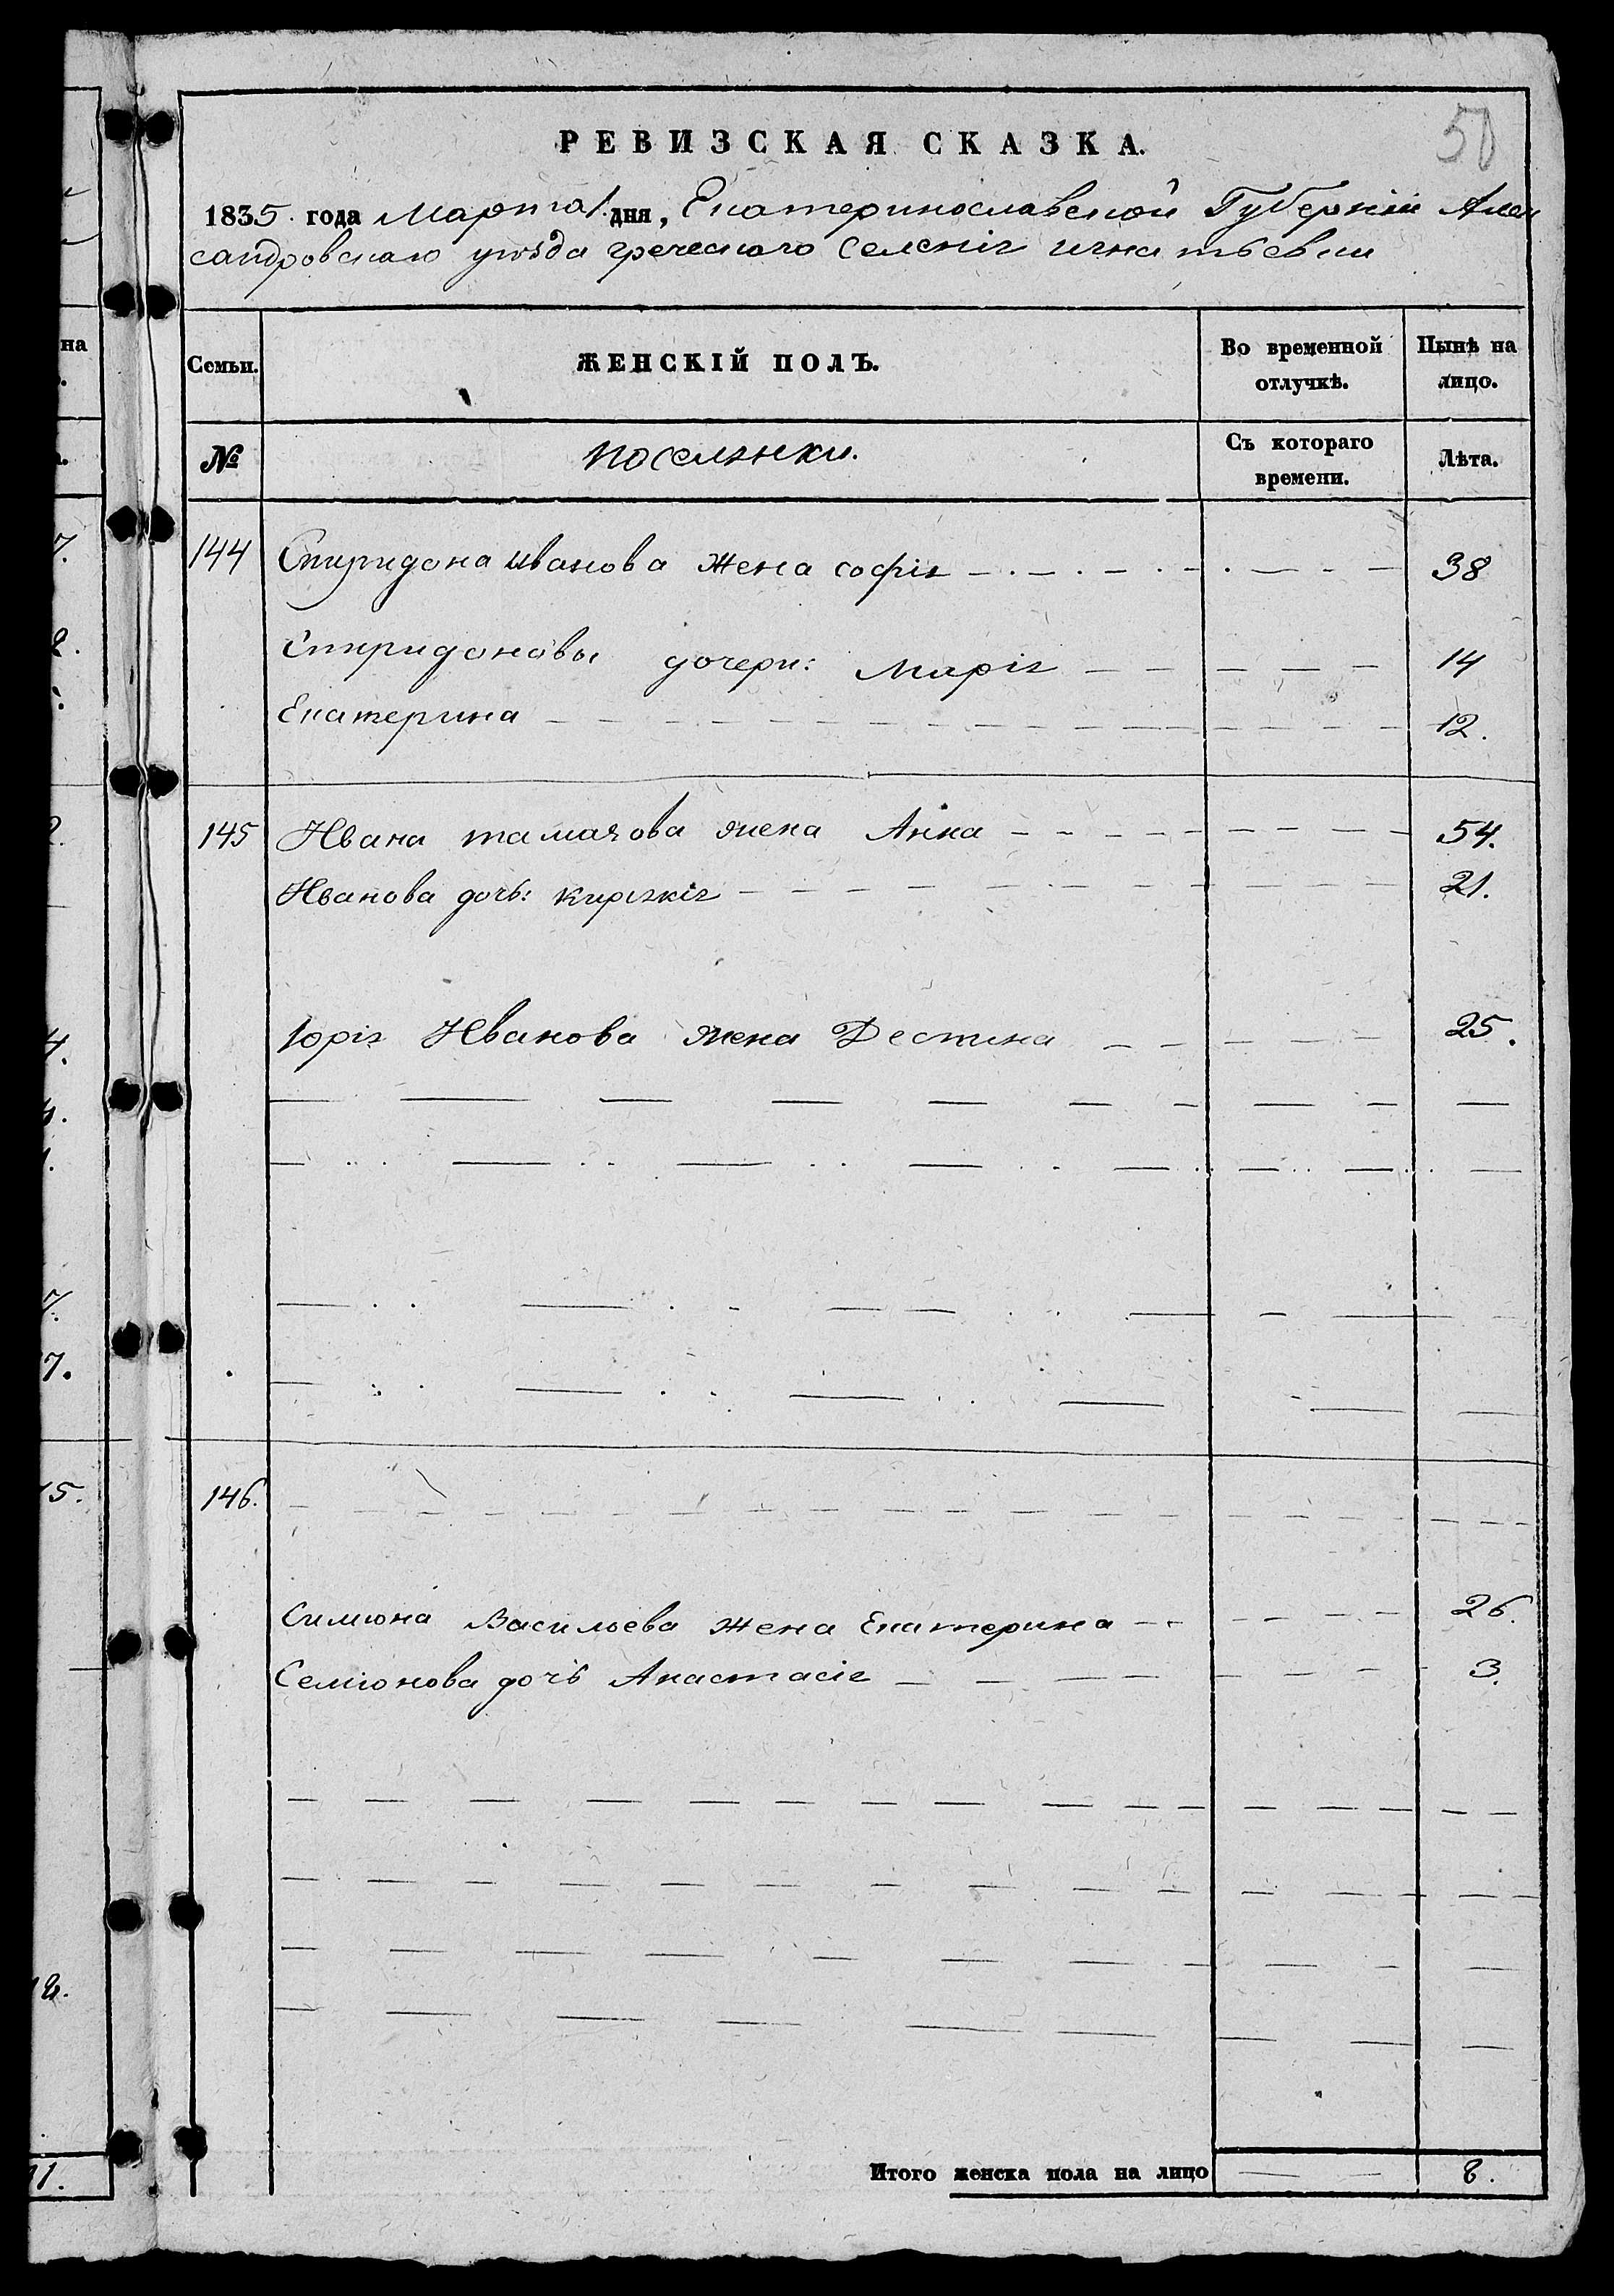 50
РЕВИЗСКАЯ СКАЗКА.
1835. года Марта 1. дня, Екатеринославской Губерніи Алек
сандровскаго уѣзда греческаго селенія игнатьевки
Семьи. ЖЕНСКІЙ ПОЛЪ. Во временной отлучкѣ. Нынѣ на лицо.
№ поселянки. Съ котораго времени. Лѣта.
144 Спиридона иванова жена софія 38
Спиридоновы дочери: Марія 14
Екатерина 12.
145 Ивана тамахова жена Анна 54.
Иванова дочь: кирікія 21.
Юрія Иванова жена Деспина 25.
146.
Симіона Васильева жена Екатерина 26.
Семіонова дочь Анастасія 3.
Итого женска пола на лицо 8.
на
7.
2.
4.
7.
7.
15.
12.
11.